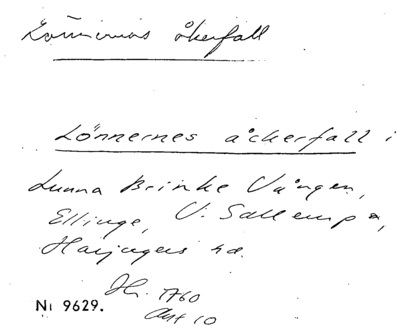 Lönnernas åkerfall
Lönnernes åckerfall i
Lunna Brinke Vången,
Ellinge, V. Sallerup s,
Harjagers hd.
Hr. 1760
Akt 10
Nr 9629.